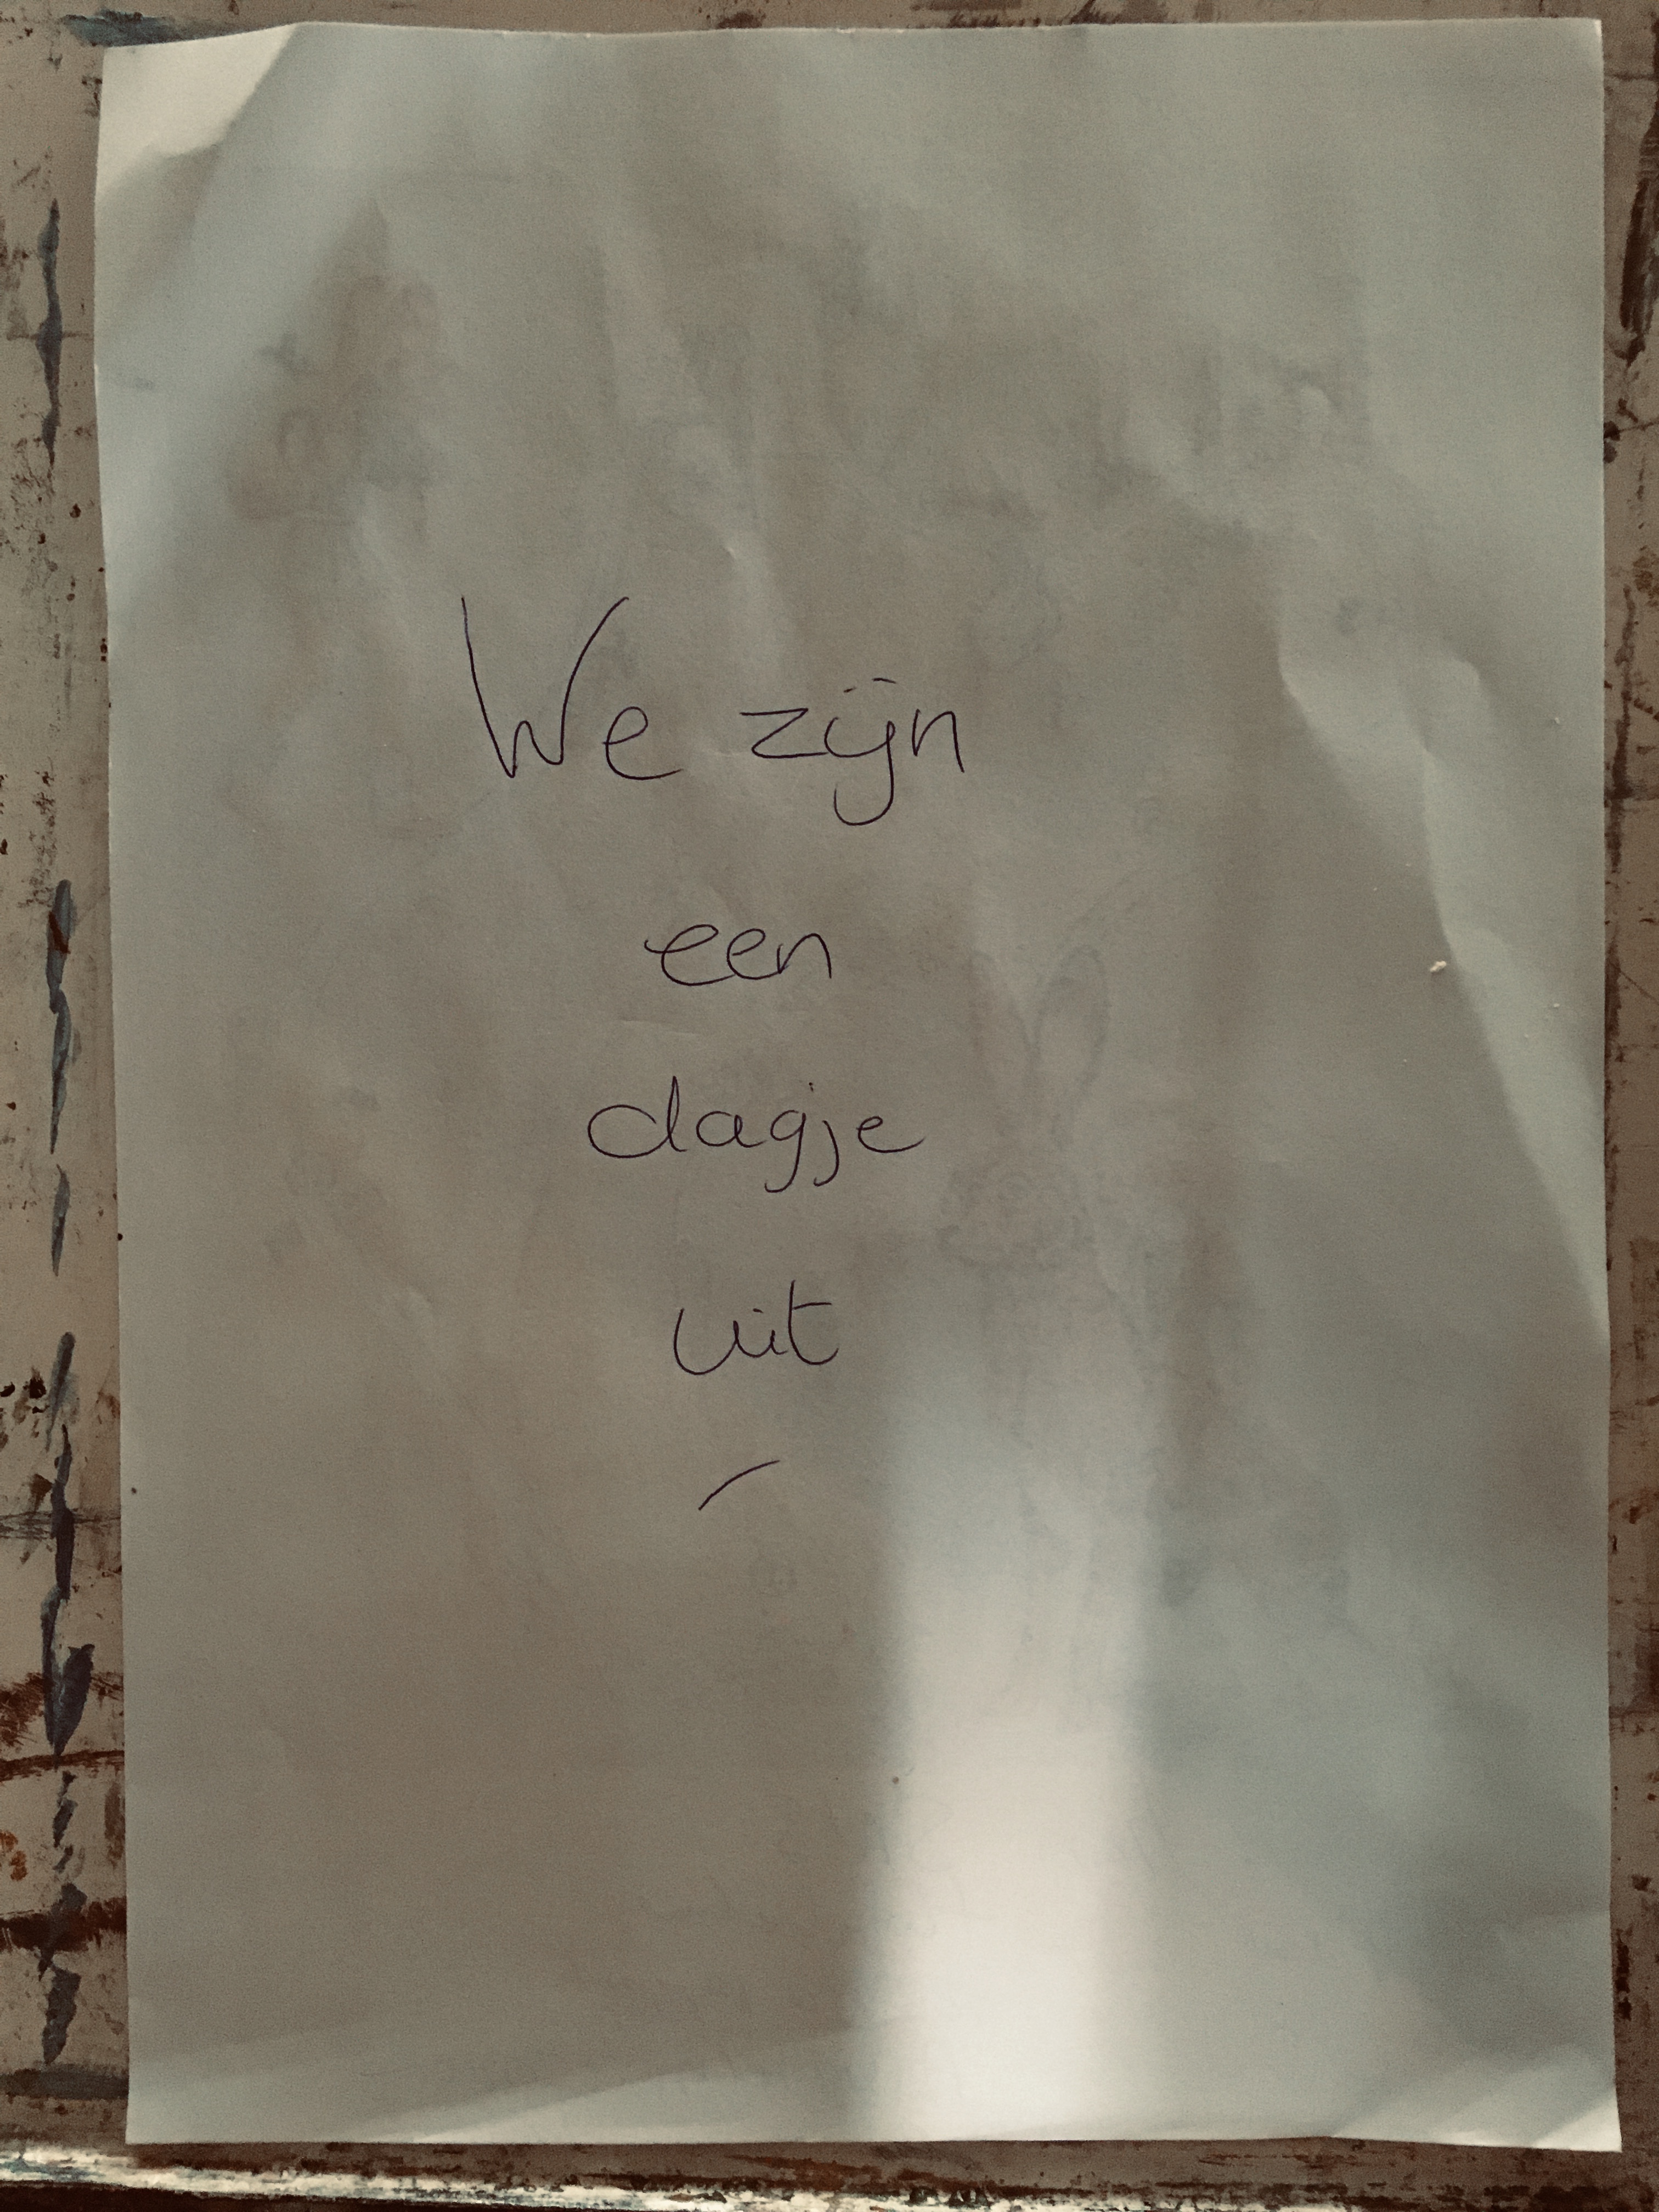 We zijn
een
dagje
uit